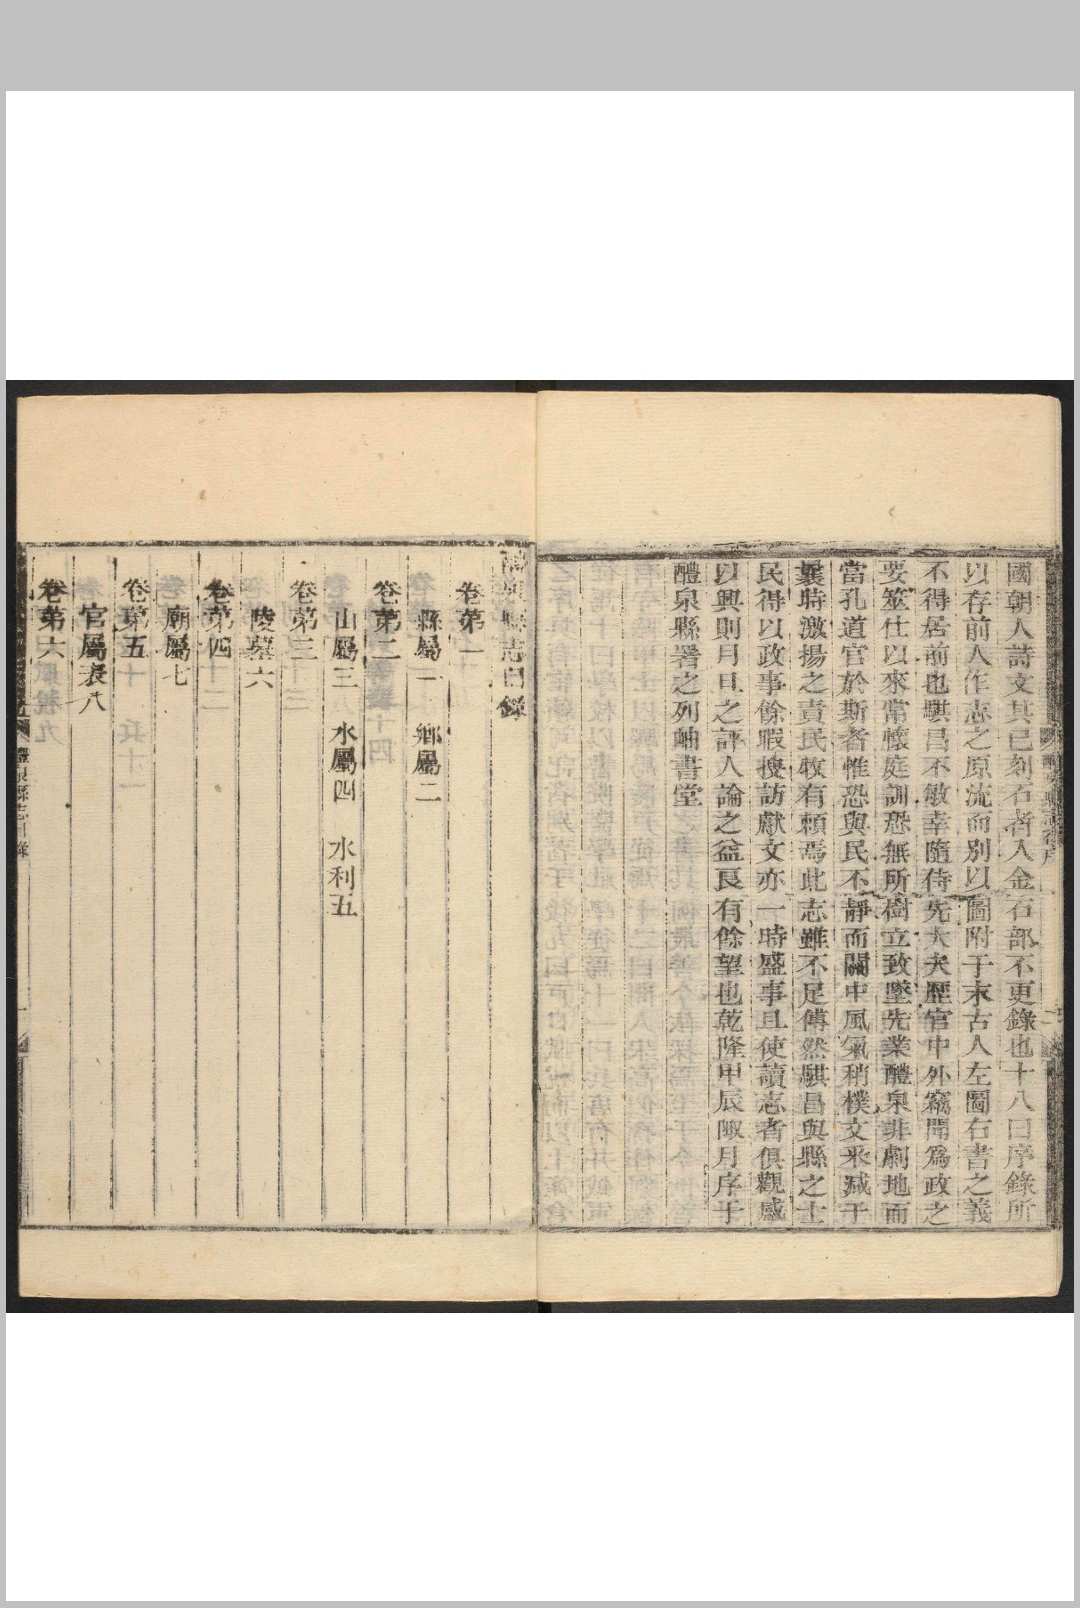 國朝人詩文其已刻石者入金石部不更錄也十八曰序錄所
以存前人作志之原流而別以圖附于末古人左圖右書之義
不得居前也騏昌不敏幸隨侍先大夫歷官中外竊聞爲政之
要筮仕以來常懷庭訓恐無所樹立致墜先業醴泉非劇地而
當孔道官於斯者惟恐與民不靜而關中風氣稍樸文采減于
曩時激揚之責民牧有賴焉此志雖不足傳然騏昌與縣之士
民得以政事餘暇搜訪獻文亦一時盛事且使讀志者俱觀感
以興則月旦之評人論之益良有餘望也乾隆甲辰陬月序于
醴泉縣署之列岫書堂
醴泉縣志目錄
卷第一
縣屬一 鄉屬二
卷第二
山屬三 水屬四 水利五
卷第三
陵墓六
卷第四
廟屬七
卷第五
官屬表八
卷第六
醴泉縣志目錄 一